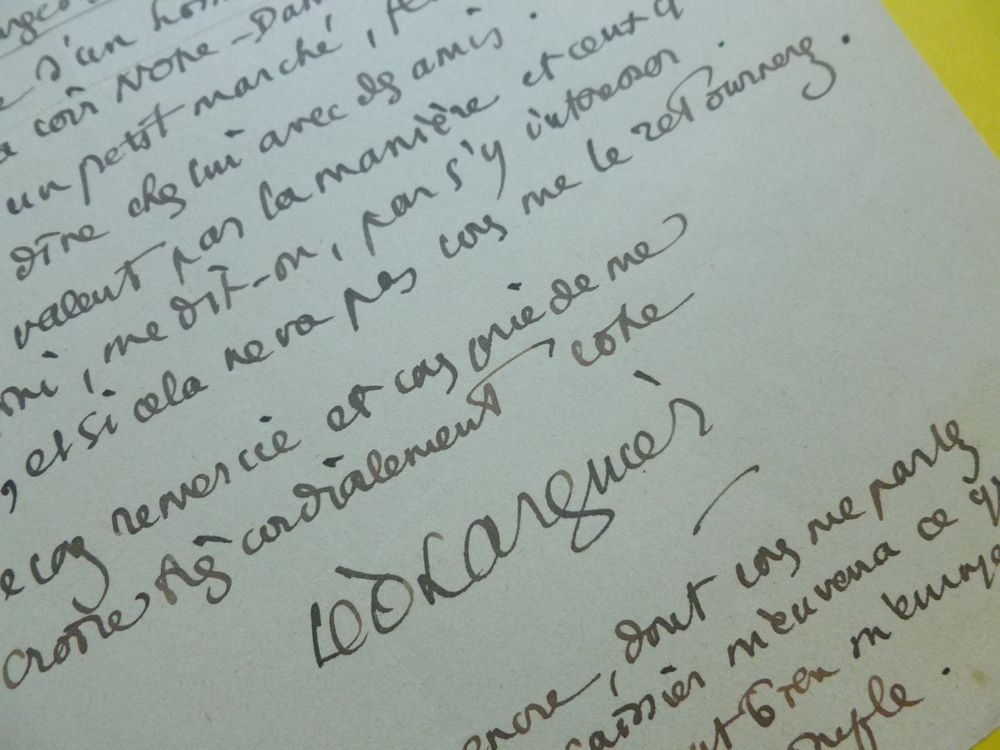 d'un hom
Notre-Dam
un petit marché,
dire chez lui avec des amis.
valent pas la manière et ceux q
, me dit-on, pas s'y intéresser
, et si cela ne va pas vous me le retournerez.
e vous remercie et vous prie de me
croire très cordialement votre
Léo Larguier
encore, dont vous me parlez
caissier m'enverra ce qu
bien m'envoye